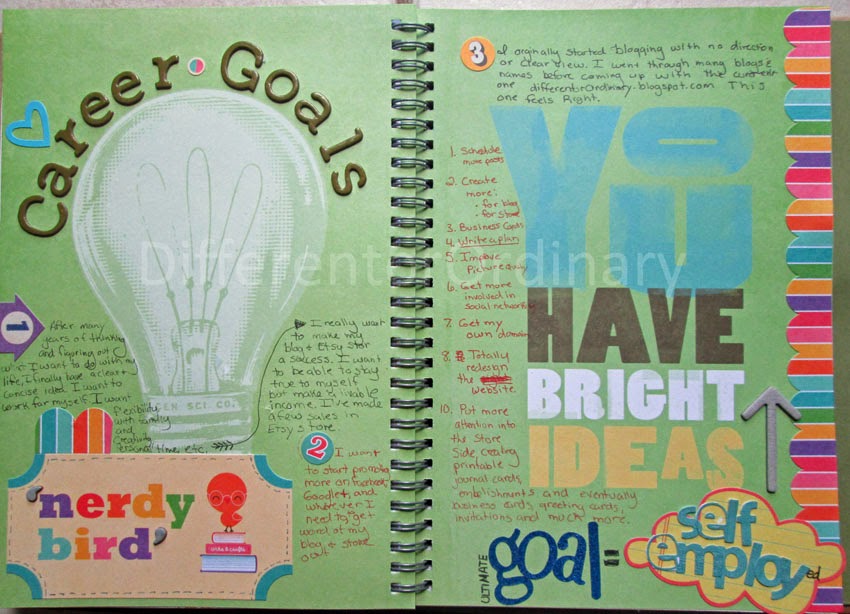 Career Goals
1
After many
years of thinking
and figuring out
what I want to do with my
life, I finally have a clear +
concise idea. I want to
work for myself. I want
flexibility
with family
and
Creativity
personal time, etc.
I really want
to make my
blog + Etsy stor
a success. I want
to be able to stay
true to myself
but make a viable
income. I've made
a few sales in
Etsy Store.
EN SCI. CO.
2
I want
to start promoting
more on facebook,
Google+, and
whatever I
need to get
word of my
blog + store
out
'nerdy
bird'
3
I orginally started blogging with no direction
or clear view. I went through many blogs
names before coming up with the
one differentorordinary.blogspot.com This
one feels Right.
1. Schedule
more posts
2. Create
more:
· for blog
· for store
3. Business Cards
4. Write a plan
5. Improve
Picture quality
6. Get more
involved in
social networks
7. Get my
own domain
8. Totally
redesign
the
website.
10. Put more
attention into
the Store
Side, creating
printable
journal cards,
emblishments and eventually
business cards, greeting cards,
invitations and much more.
YOU
HAVE
BRIGHT
IDEAS
ULTIMATE
goal =
self
employed
DifferentorOrdinary